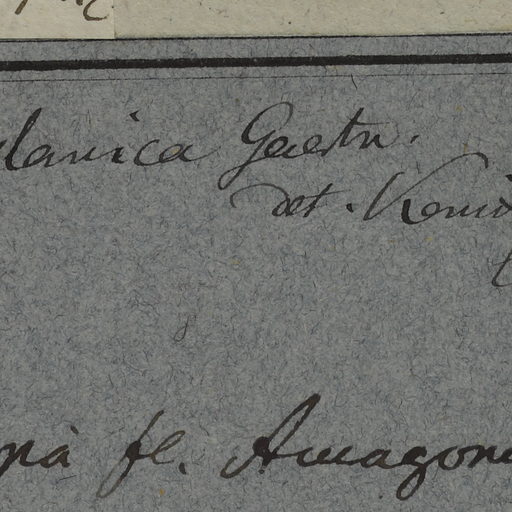 lanica Gaertn.
det. Kenio
pà fl. Amazon